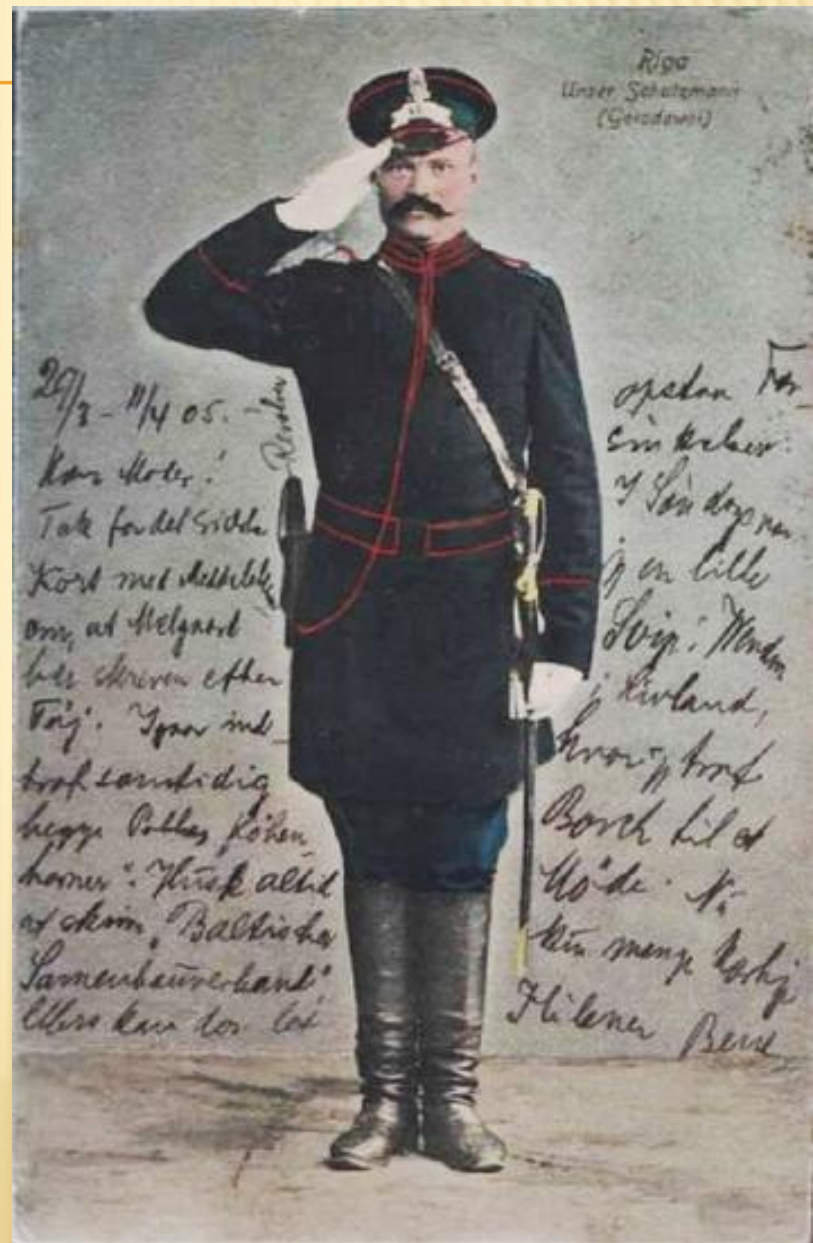 Riga
Unser Schutzmann
(Gorodowoi)
29/3 - 11/4 05.
Kære Moder!
Tak for det sidste
Kort med Meddelelse
om, at
har skreven efter
Tøj. Igaar ind-
traf samtidig
begge
Husk altid
at skrive „Baltischer
Samenbauverband"
Ellers kan der let
Revolver
opstaa For-
sinkelser.
I Søndags var
jeg en lille
Svip i Wenden
i Livland,
hvor jeg traf
Borch til et
Møde. Nu
kun mange kærlige
Hilsener